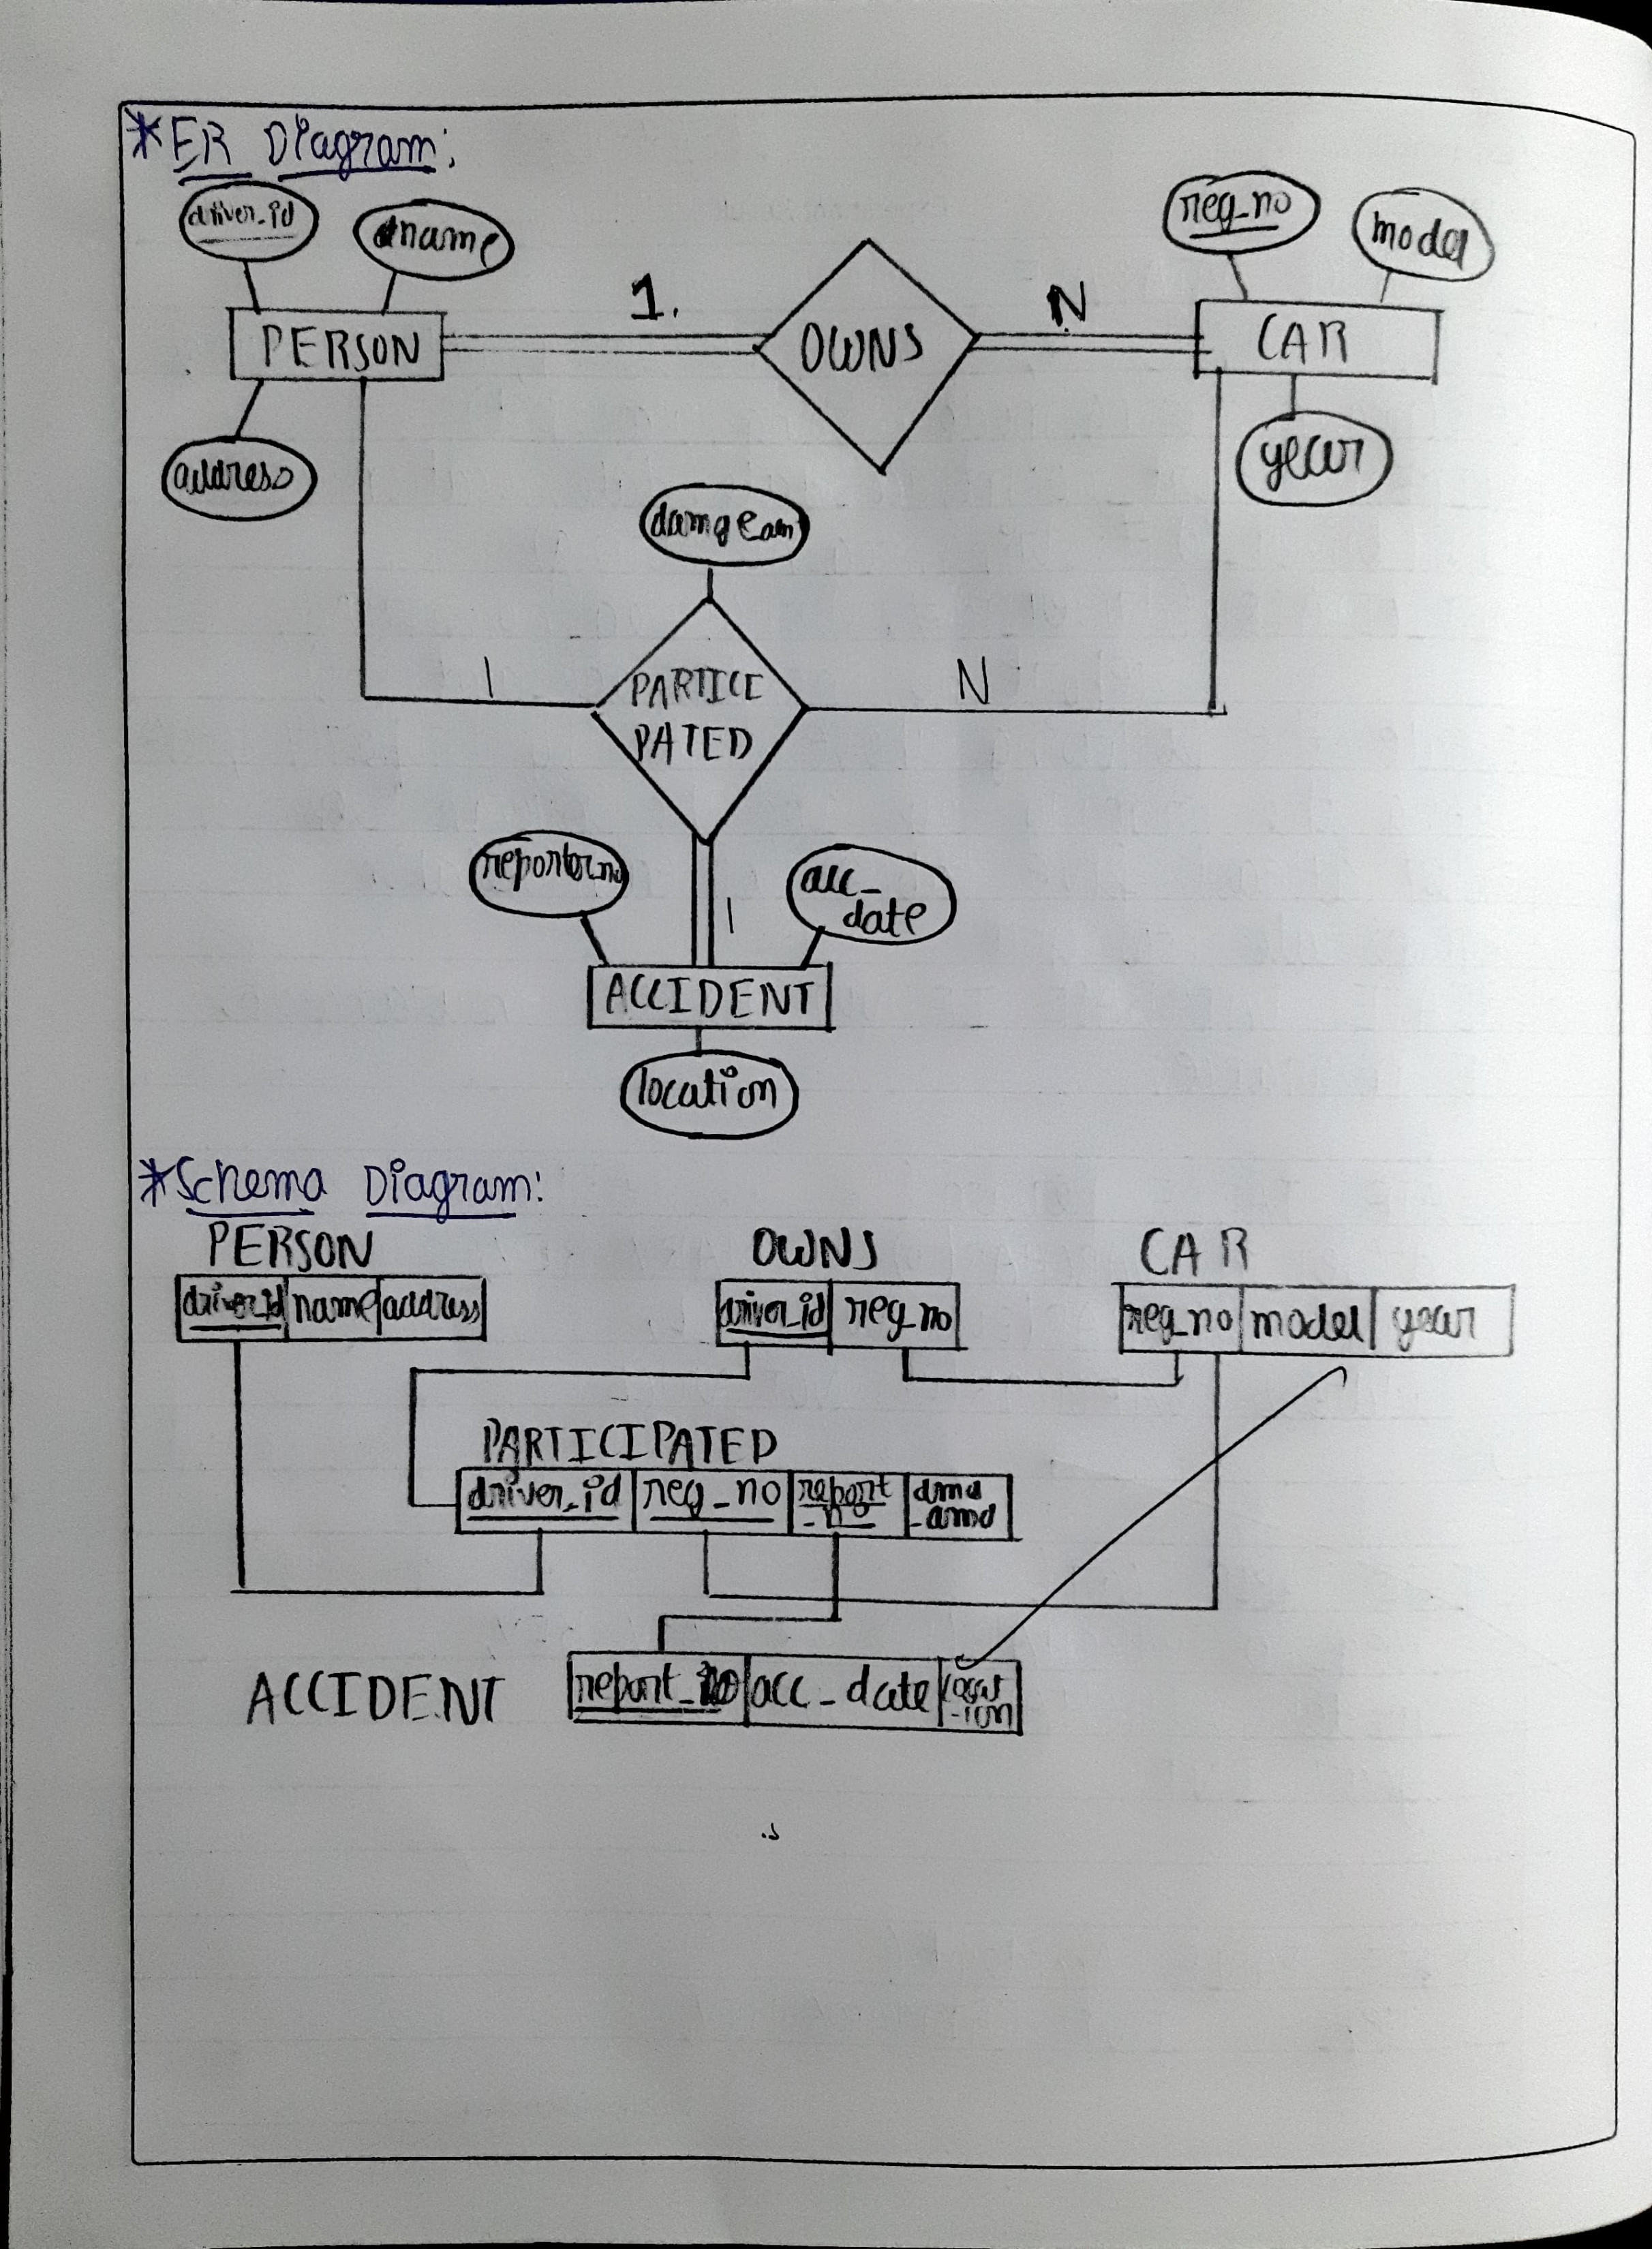 *ER Diagram:
driver_id
name
reg_no
model
1.
N
PERSON
OWNS
CAR
address
year
damgeam
1
N
PARTICI
PATED
reporterno
acc_
date
1
ACCIDENT
location
*Schema Diagram:
PERSON OWNS CAR
driver_id name address driver_id reg_no reg_no model year
PARTICIPATED
driver_id reg_no report
_no
dma
_amd
ACCIDENT report_no acc_date locat
-ion